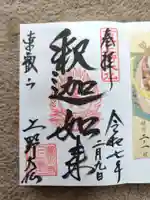 奉拝
令和七年
二月九日
釈迦如来
東叡山
上野大仏